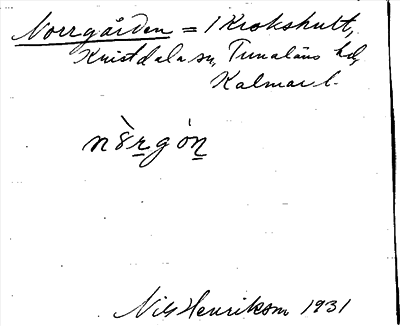 Norrgården = 1 Krokshult,
Kristdala sn, Tunaläns hd,
Kalmar l.
nòrgón
Nils Henrikson 1931